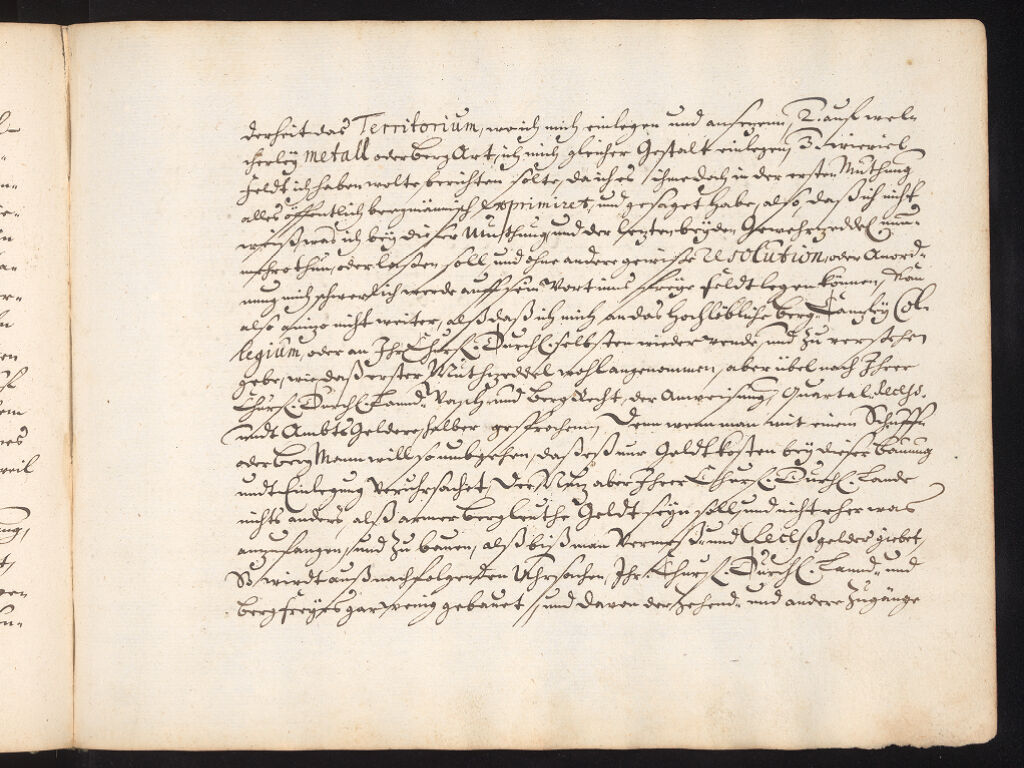 derheit das Territorium, wo ich mich einlegen und ansetzen, 2. auf wel-
cherleÿ metall oder berg Art, ich mich gleicher Gestalt einlegen, 3. wieviel
Feldt ich haben wolte berichten solte, da ich es ihme doch in der ersten Muthung
alles öffentlich bergmännisch exprimiret, und gesaget habe, also, daß ich nicht
weiß was ich beÿ dieser Muthung, und der letzten beÿden Gewehrzeddel nun-
mehro thun, oder laßen soll und ohne andere gewiße resolution, oder Anord-
nung mich schwerlich werde auff sein Wort ins freÿe feldt legen können, Kan
also anizo nicht weiter, alß daß ich mich an das Hochlöbliche berg Cantzleÿ Col-
legium, oder an Ihr Churf. Durchl. selbsten wieder wende, und zu verstehen
gebe, wie daß erster Muthzeddel wohl angenommen, aber übel nach Ihrer
Churf. Durchl. Landt und Berg Recht, der Anweisung, Quartal, Recess
undt Ambts Geldere halber gesprochen, Denn wenn man mit einem
oder berg Mann will so umbgehen, daß es nur Geldt kosten beÿ dieser bauung
undt Einlegung veruhrsachet, Der Nutz aber Ihrer Churf. Durchl. Lande
nichts anders, alß armer bergleuthe Geldt seÿn soll, und nicht eher was
anzufangen, und zu bauen, alß biß man Vermeß- und Receßgelder giebet,
So wirdt auß nachfolgenden Uhrsachen, Ihr. Churf. Durchl. Landt- und
bergfreÿes gar wenig gebauet, und davon der zehend- und andere Zugänge